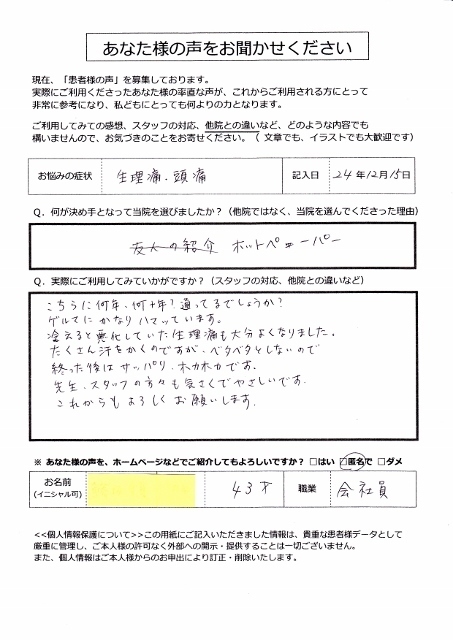 あなた様の声をお聞かせください
現在、「患者様の声」を募集しております。
実際にご利用くださったあなた様の率直な声が、これからご利用される方にとって
非常に参考になり、私どもにとっても何よりの力となります。
ご利用してみての感想、スタッフの対応、他院との違いなど、どのような内容でも
構いませんので、お気づきのことをお寄せください。（ 文章でも、イラストでも大歓迎です）
お悩みの症状 生理痛・頭痛 記入日 24年12月15日
Q．何が決め手となって当院を選びましたか？（他院ではなく、当院を選んでくださった理由）
友人の紹介 ホットペッパー
Q．実際にご利用してみていかがですか？（スタッフの対応、他院との違いなど）
こちらに何年、何十年？通ってるでしょうか？
ゲルマにかなりハマっています。
冷えると悪化していた生理痛も大分よくなりました。
たくさん汗をかくのですが、ベタベタしないので
終った後はサッパリ、ホカホカです。
先生、スタッフの方々も気さくでやさしいです。
これからもよろしくお願いします。
※ あなた様の声を、ホームページなどでご紹介してもよろしいですか？ □はい □匿名で □ダメ
お名前
(イニシャル可) 43才 職業 会社員
<<個人情報保護について>>この用紙にご記入いただきました情報は、貴重な患者様データとして
厳重に管理し、ご本人様の許可なく外部への開示・提供することは一切ございません。
また、個人情報はご本人様からのお申出により訂正・削除いたします。